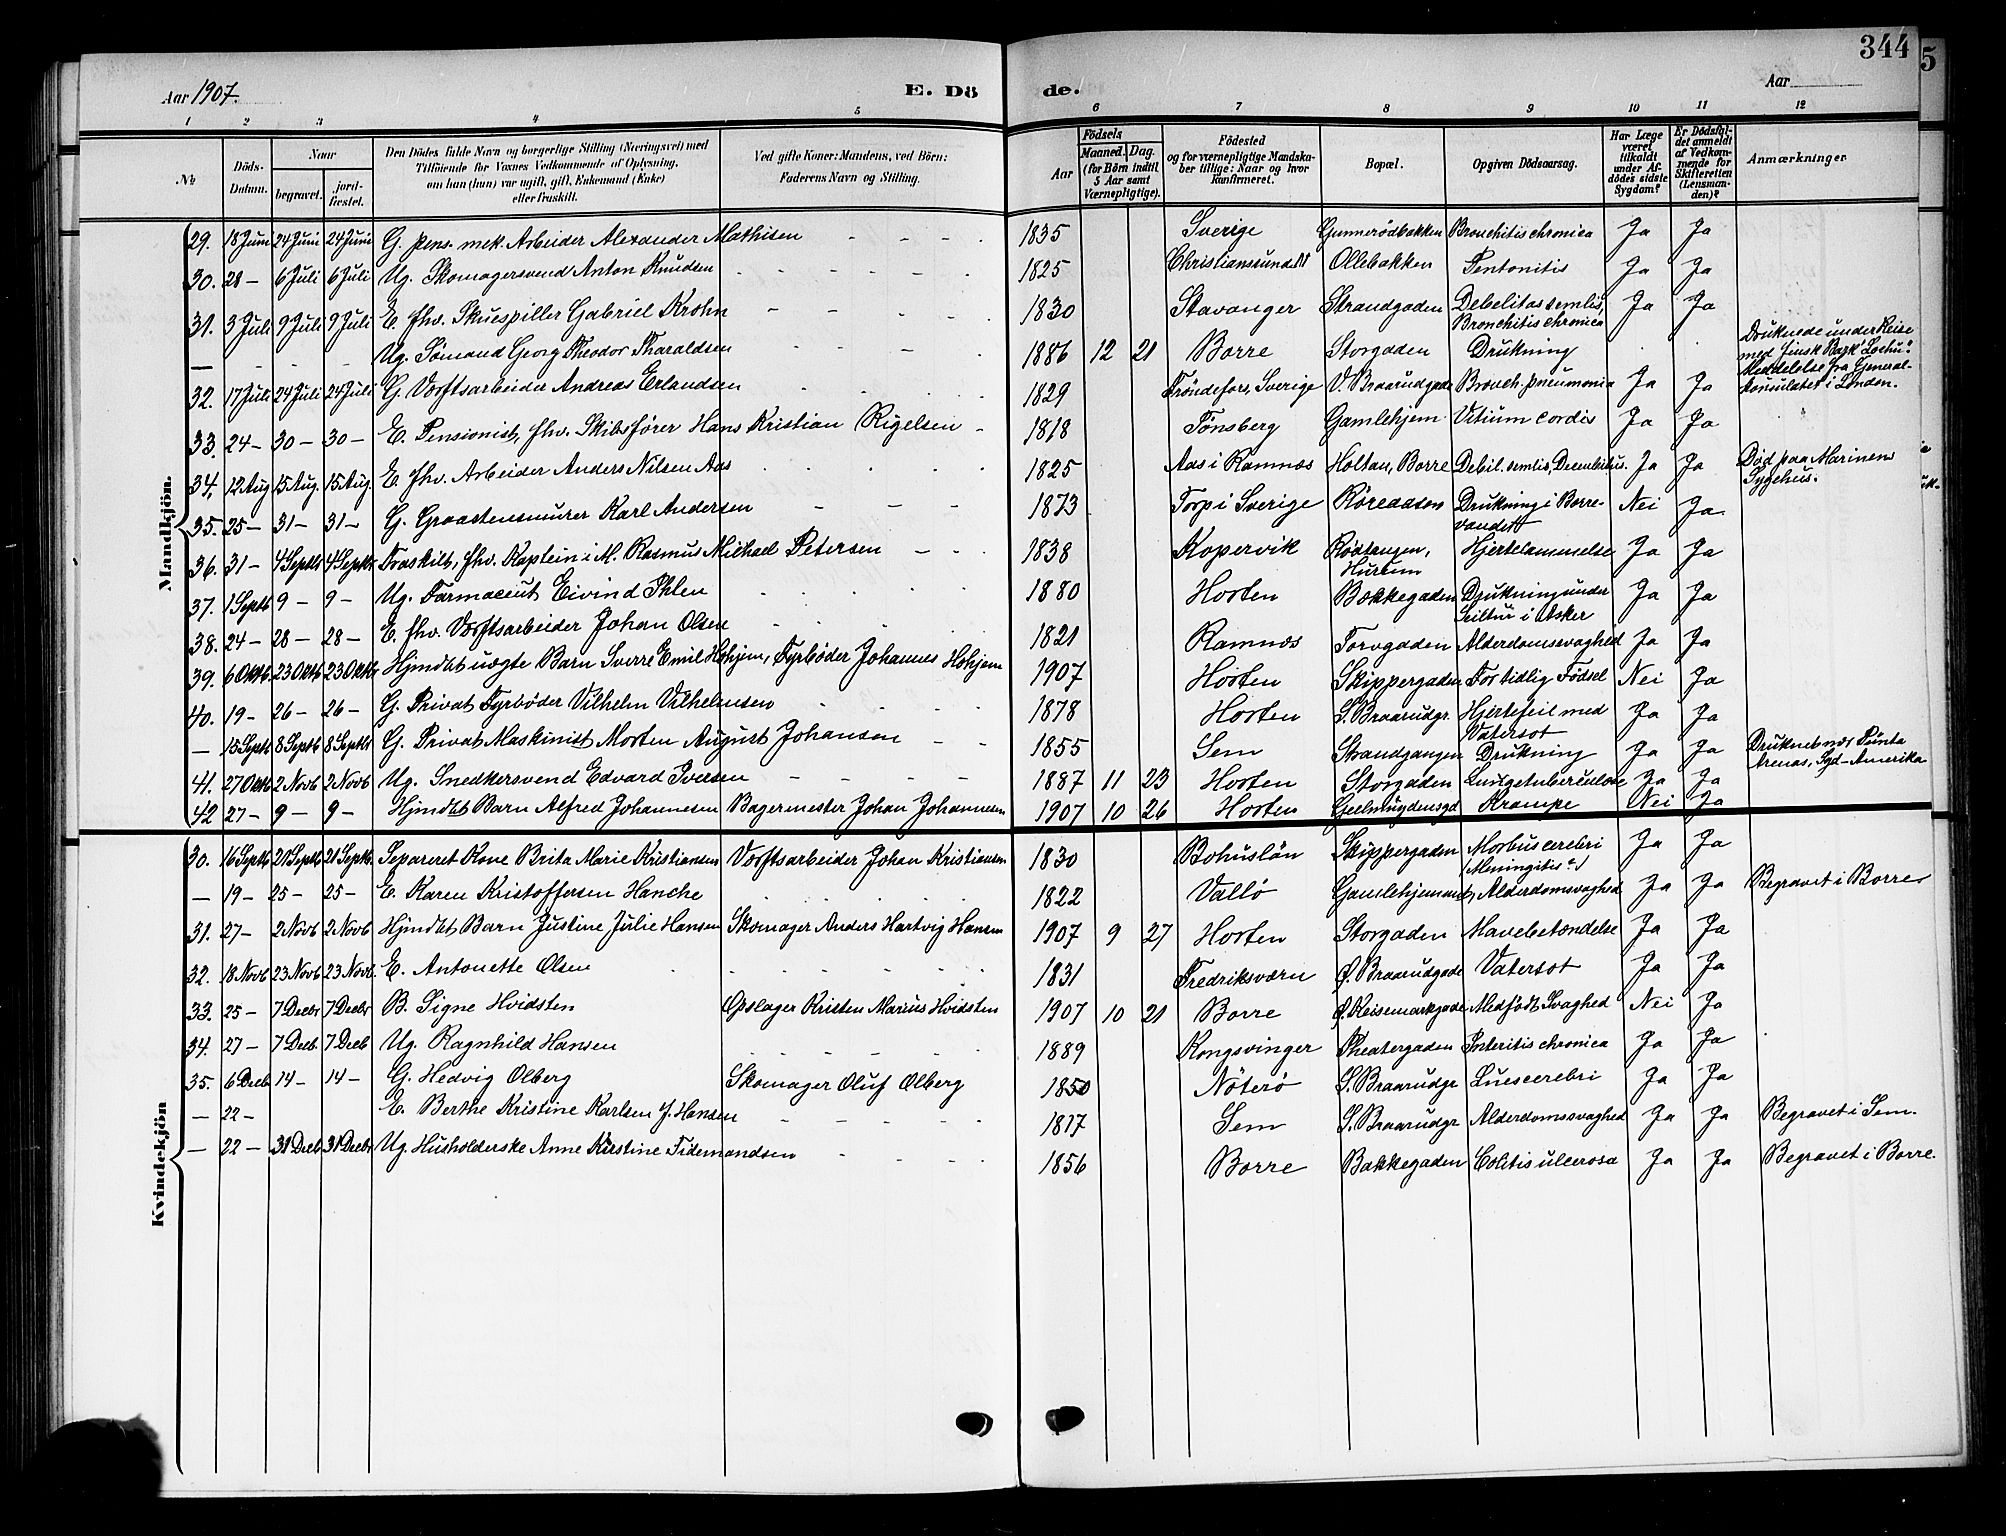 344
5
Aar 1907.
E. Dö
de.
Aar
1 2 3 4 5 6 7 8 9 10 11 12
No
Döds-Datum.
Naar
begravet.
jord-fæstet.
Den Dödes fulde Navn og borgerlige Stilling (Næringsvei) med
Tilföiende for Voxnes Vedkommende af Oplysning,
om han (hun) var ugift, gift, Enkemand (Enke)
eller fraskilt.
Ved gifte Koner: Mandens, ved Börn:
Faderens Navn og Stilling.
Födsels
Aar
Maaned. Dag.
(for Börn indtil
5 Aar samt
Værnepligtige).
Födested
og for værnepligtige Mandska-
ber tillige: Naar og hvor
konfirmeret.
Bopæl.
Opgiven Dödsaarsag.
Har Læge
været
tilkaldt
under Af-
dödes sidste
Sygdom?
Er Dödsfal-
det anmeldt
af Vedkom-
mende for
Skifteretten
(Lensman-
den)?
Anmærkninger
Mandkjön.
29. 18 Juni 24 Juni 24 Juni G. pens. mek. Arbeider Alexander Mathisen - - - - 1835 Sverige Gunnerödbakken Bronchitis chronica Ja Ja
30. 28 - 6 Juli 6 Juli Ug. Skomagersvend Anton Knudsen - - - - 1825 Christianssund N Ollebakken Ja Ja
31. 3 Juli 9 Juli 9 Juli E. fhv. Skuespiller Gabriel Krohn - - - - 1830 Stavanger Strandgaden Debelitas senilis, Bronchitis chronica Ja Ja
— - - - Ug. Sømand Georg Theodor Tharaldsen - - - 1886 12 21 Borre Storgaden Drukning Druknede under Reise med finsk Bark Meddelelse fra General-konsulatet i London.
32. 17 Juli 24 Juli 24 Juli G. Værftsarbeider Andreas Erlandsen 1829 Sverige V. Braarudgade Bronch. pneumonia Ja Ja
33. 24 - 30 - 30 - E. Pensionist, fhv. Skibsfører Hans Kristian Rigelsen - 1818 Tønsberg Gamlehjem Vitium cordis Ja Ja
34. 12 Aug 15 Aug. 15 Aug. E. fhv. Arbeider Anders Nilsen Aas 1825 Aas i Ramnæs Holtan, Borre Debil. senilis, Decubitus. Ja Ja Død paa Marinens Sygehus.
35. 25 - 31 - 31 - G. Graastensmurer Karl Andersen - - - 1873 Torp i Sverige Røreaasen Drukning i Borre-vandet Nei Ja
36. 31 - 4 Septb 4 Septbr Fraskilt, fhv. Kaptein i M. Rasmus Michael Petersen - - 1838 Kopervik Rødtangen, Hurum Hjertelammelse Ja Ja
37. 1 Septb 9 - 9 - Ug. Farmaceut Eivind Ihlen 1880 Horten Bakkegaden Drukning under Seiltur i Asker Ja Ja
38. 24 - 28 - 28 - E. fhv. Værftsarbeider Johan Olsen 1821 Ramnæs Torvgaden Alderdomssvaghed Ja Ja
39. 6 Oktb. 23 Oktb 23 Oktbr Hjmdbt uægte Barn Sverre Emil Høhjem, Fyrbøder Johannes Høhjem 1907 Horten Skippergaden For tidlig Fødsel Nei Ja
40. 19 - 26 - 26 - G. Privat Fyrbøder Vilhelm Vilhelmsen 1878 Horten S. Braarudgr. Hjertefeil med Vatersot Ja Ja
— 15 Septb 8 Septb 8 Septbr G. Privat Maskinist Morten August Johansen - - 1855 Sem Strandgangen Drukning Ja Ja Druknet nær Punta Arenas, Syd-Amerika
41. 27 Oktb 2 Novb 2 Novb Ug. Snedkersvend Edvard Iversen - - - - 1887 11 23 Horten Storgaden Lungetuberculose Ja Ja
42 27 - 9 - 9 - Hjmdbt Barn Alfred Johannesen Bagermester Johan Johannesen 1907 10 26 Horten Geelmuydensgd Krampe Nei Ja
Kvindekjön
30. 16 Septb 21 Septb 21 Septb. Separeret Kone Brita Marie Kristiansen Værftsarbeider Johan Kristiansen 1830 Bohuslän Skippergaden Morbus cerebri (Meningitis?) Ja Ja
— 19 - 25 - 25 - E. Karen Kristoffersen Hanche 1822 Vallø Gamlehjemmet, Alderdomssvaghed Ja Ja Begravet i Borre
31. 27 - 2 Novb 2 Novb Hjmdbt Barn Justine Julie Hansen Skomager Anders Hartvig Hansen 1907 9 27 Horten Storgaden Mavebetændelse Ja Ja
32. 18 Novb 23 Novb 23 Novb. E. Antonette Olsen 1831 Fredriksværn Ø. Braarudgade Vatersot Ja Ja
33. 25 - 7 Decbr 7 Decbr B. Signe Hvidsten Opslager Kristen Marius Hvidsten 1907 10 21 Borre Ø. Keisemarkgade Medfødt Svaghed Nei Ja
34. 27 - 7 Decb. 7 Decb Ug. Ragnhild Hansen - - - - 1889 Kongsvinger Theatergaden Interitis chronica Ja Ja
35. 6 Decb 14 - 14 - G. Hedvig Olberg Skomager Oluf Olberg 1850 Nøterø S. Braarudgr Lues cerebri Ja Ja
— 22 - E. Berthe Kristine Karlsen f. Hansen - - - 1817 Sem S. Braarudgr Alderdomssvaghed Ja Ja Begravet i Sem.
— 22 - 31 Decb 31 Decbr Ug. Husholderske Anne Kirstine Tidemandsen - - - 1856 Borre Bakkegaden Colitis ulcerosa Ja Ja Begravet i Borre.